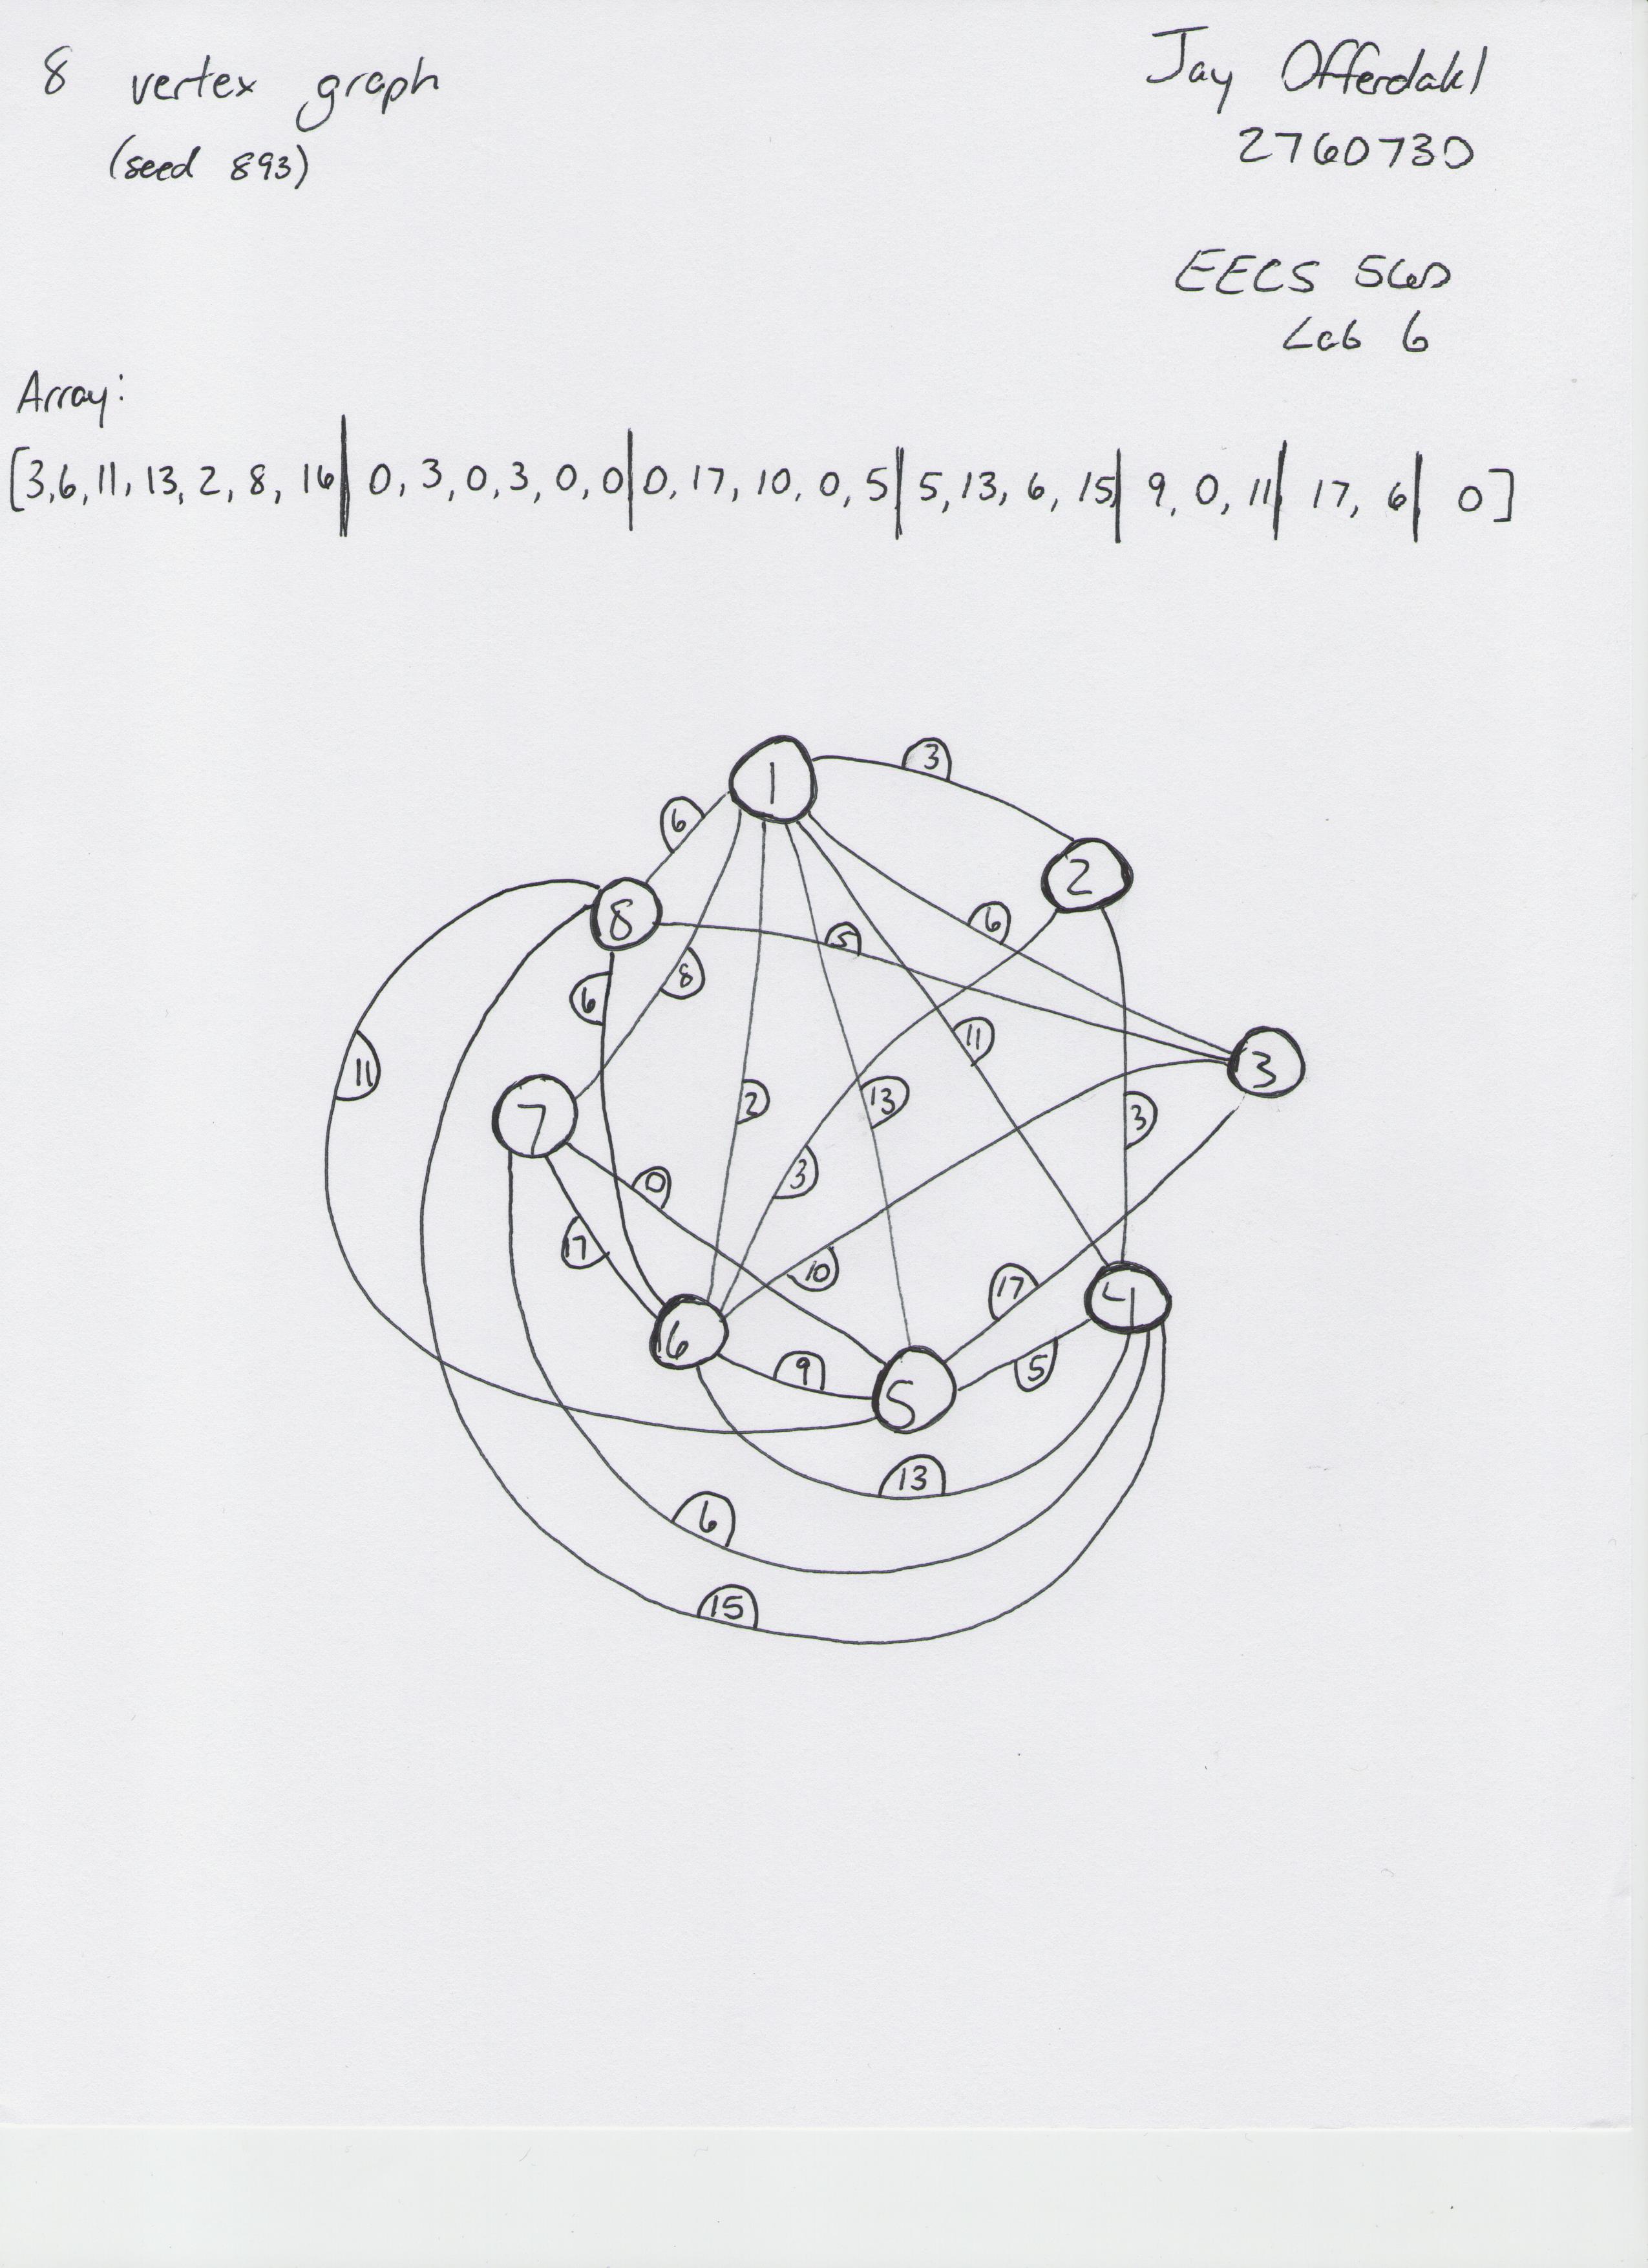 8 vertex graph
(seed 893)
Jay Offerdahl
2760730
EECS 560
Lab 6
Array:
[3,6,11,13,2,8,16| 0,3,0,3,0,0|0,17,10,0,5|5,13,6,15|9,0,11|17,6|0]
1
3
6
2
8
6
5
6
8
11
3
11
7
2
13
3
3
0
17
10
17
4
6
9
5
5
13
6
15